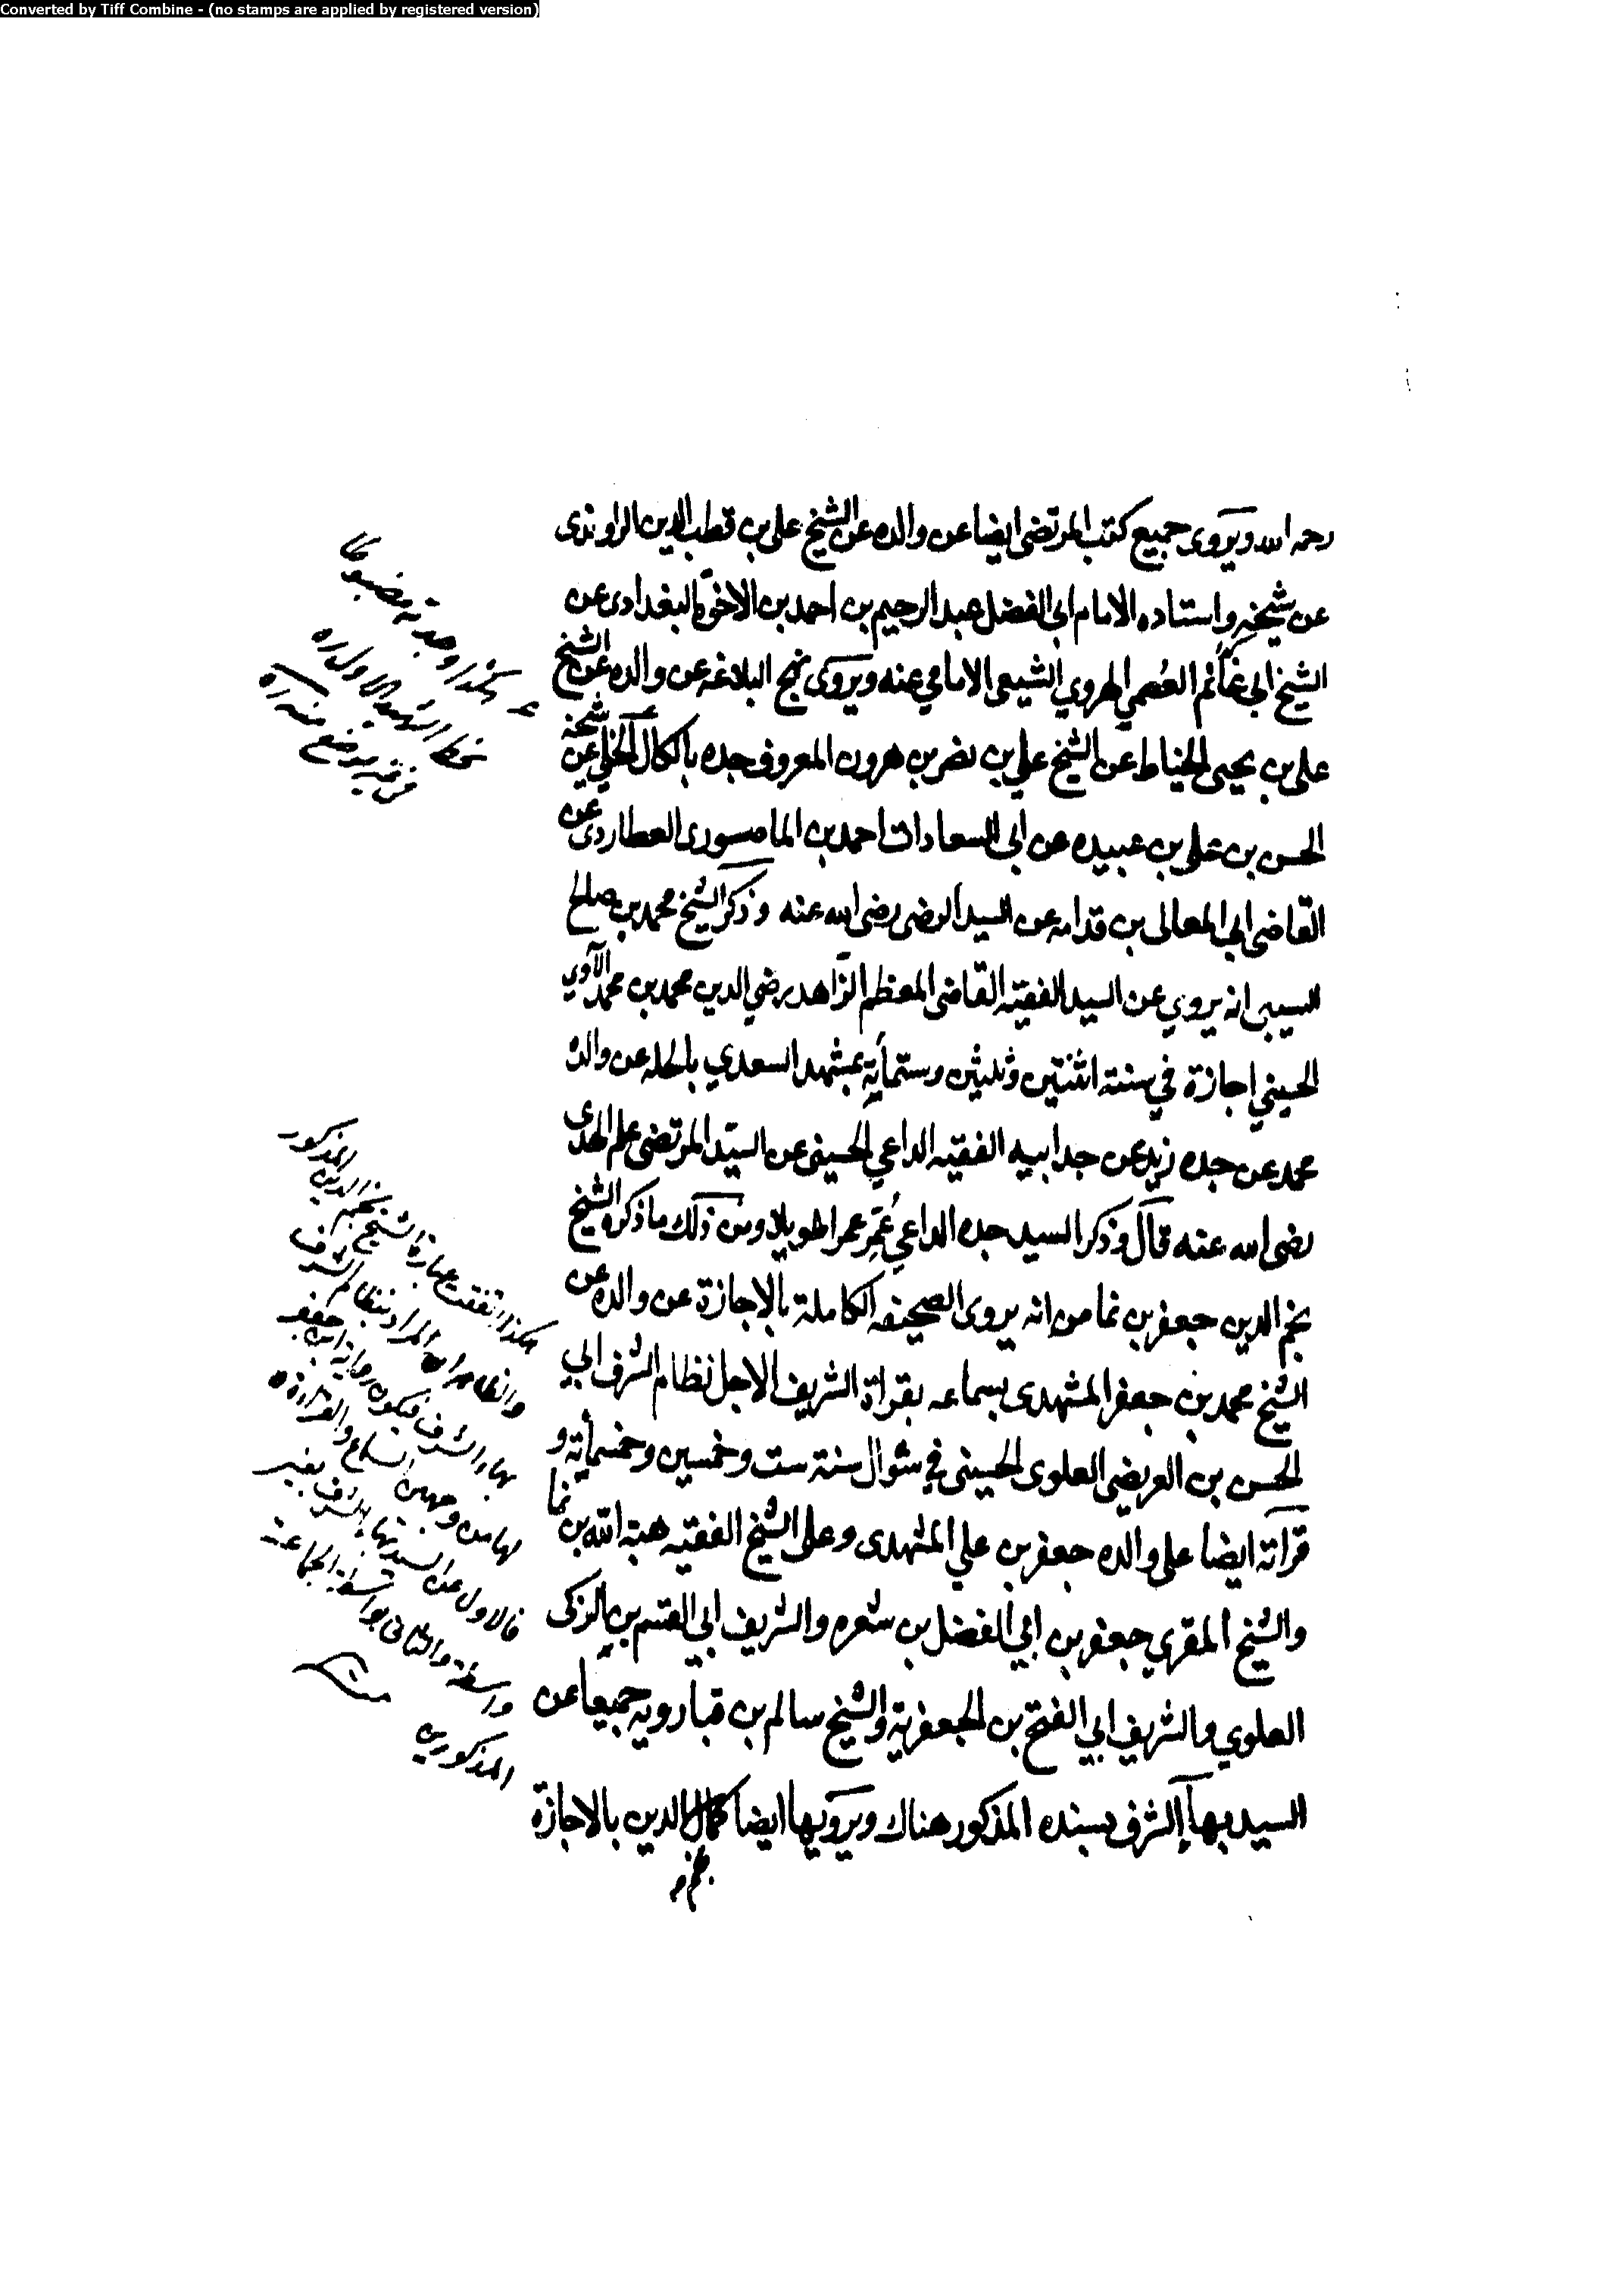 Converted by Tiff Combine - (no stamps are applied by registered version)
رحمه الله ويروى جميع كتب المرتضى ايضا عن والده عن الشيخ على بن قطب الدين الراوندى
عن شيخه واستاده الامام ابى الفضل عبد الرحيم بن احمد بن الاخوة البغدادى عن
الشيخ ابى غانم العصمي الهروي الشيعى الامامي عنه ويروى نهج البلاغه عن والده عن الشيخ
على بن يحيى الخياط عن الشيخ علي بن نصر بن هرون المعروف جده بالكال الحلي عن شيخه
الحسن بن على بن عبيده عن ابى السعادات احمد بن الماصورى العطاردى عن
القاضى ابي المعالى بن قدامه عن السيد الرضى رضى الله عنه وذكر الشيخ محمد بن صالح
السيبى انه يروي عن السيد الفقيه القاضى المعظم الزاهد رضي الدين محمد بن محمد الآوي
الحسيني اجازة في سنة اثنتين وثلثين وستمأية بمشهد السعدي بالحله عن والده
محمد عن جده زيد عن جد ابيه الفقيه الداعي الحسينى عن السيد المرتضى علم الهدى
رضى الله عنه قال وذكر السيد جده الداعي عُمِّر عمرا طويلا ومن ذلك ما ذكره الشيخ
نجم الدين جعفر بن نما من انه يروى الصحيفه الكاملة بالاجازة عن والده عن
الشيخ محمد بن جعفر المشهدى بسماعه بقراة الشريف الاجل نظام الشرف ابي
الحسن بن العريضى العلوى الحسينى في شوال سنة ست وخمسين وخمسمأية و
قرأته ايضا على والده جعفر بن علي المشهدى وعلى الشيخ الفقيه هبة الله بن نما
والشيخ المقرى جعفر بن ابي الفضل بن شعره والشريف ابي القسم بن الزكى
العلوي والشريف ابي الفتح بن الجعفرية والشيخ سالم بن قبارويه جميعا عن
السيد بهاء الشرف بسنده المذكور هناك ويرويها ايضا كمال الدين بالاجازة
هكذا وجدته مضبوطا
بخط الشهيد الاول ره
هكذا اتفقت عبارة الشيخ نجم الدين المذكور
والظاهر ان المراد بنظام الشرف
بهاء الشرف فيكون رواية ابن جعفر
لها من وجهين السماع والقراءة
فالاول عن السيد بهاء الشرف بغير
واسطة والثانى بواسطة الجماعة
المذكورين